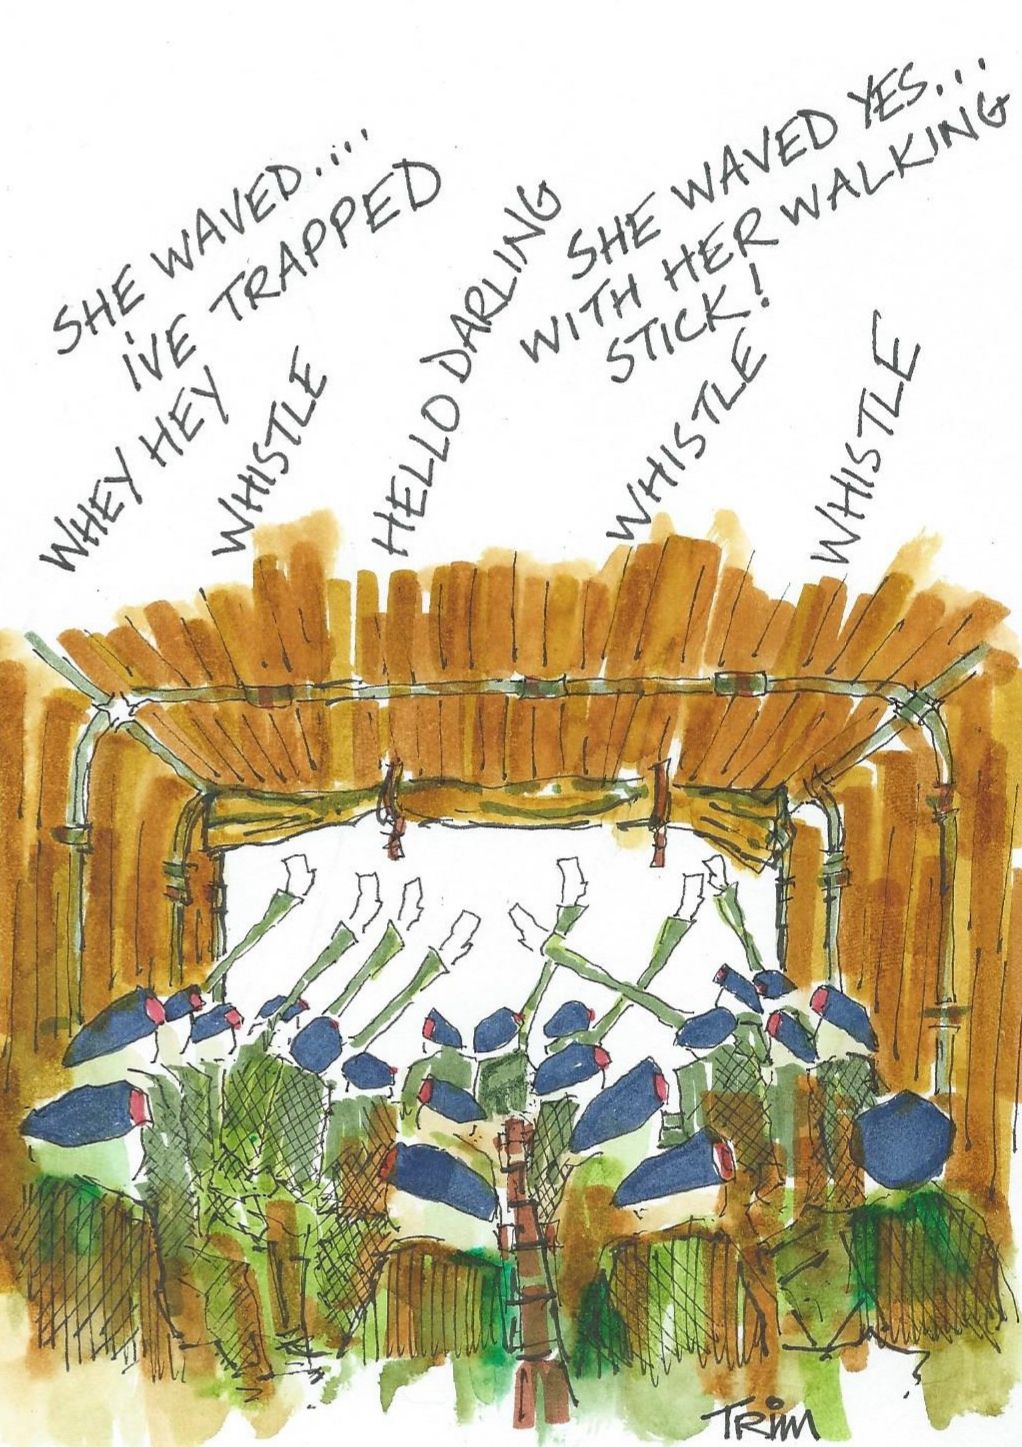 SHE WAVED....
I'VE TRAPPED
WHEY HEY
WHISTLE
HELLO DARLING
SHE WAVED YES...
WITH HER WALKING
STICK!
WHISTLE
WHISTLE
TRim